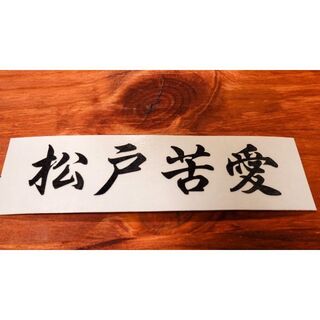 松戸苦愛